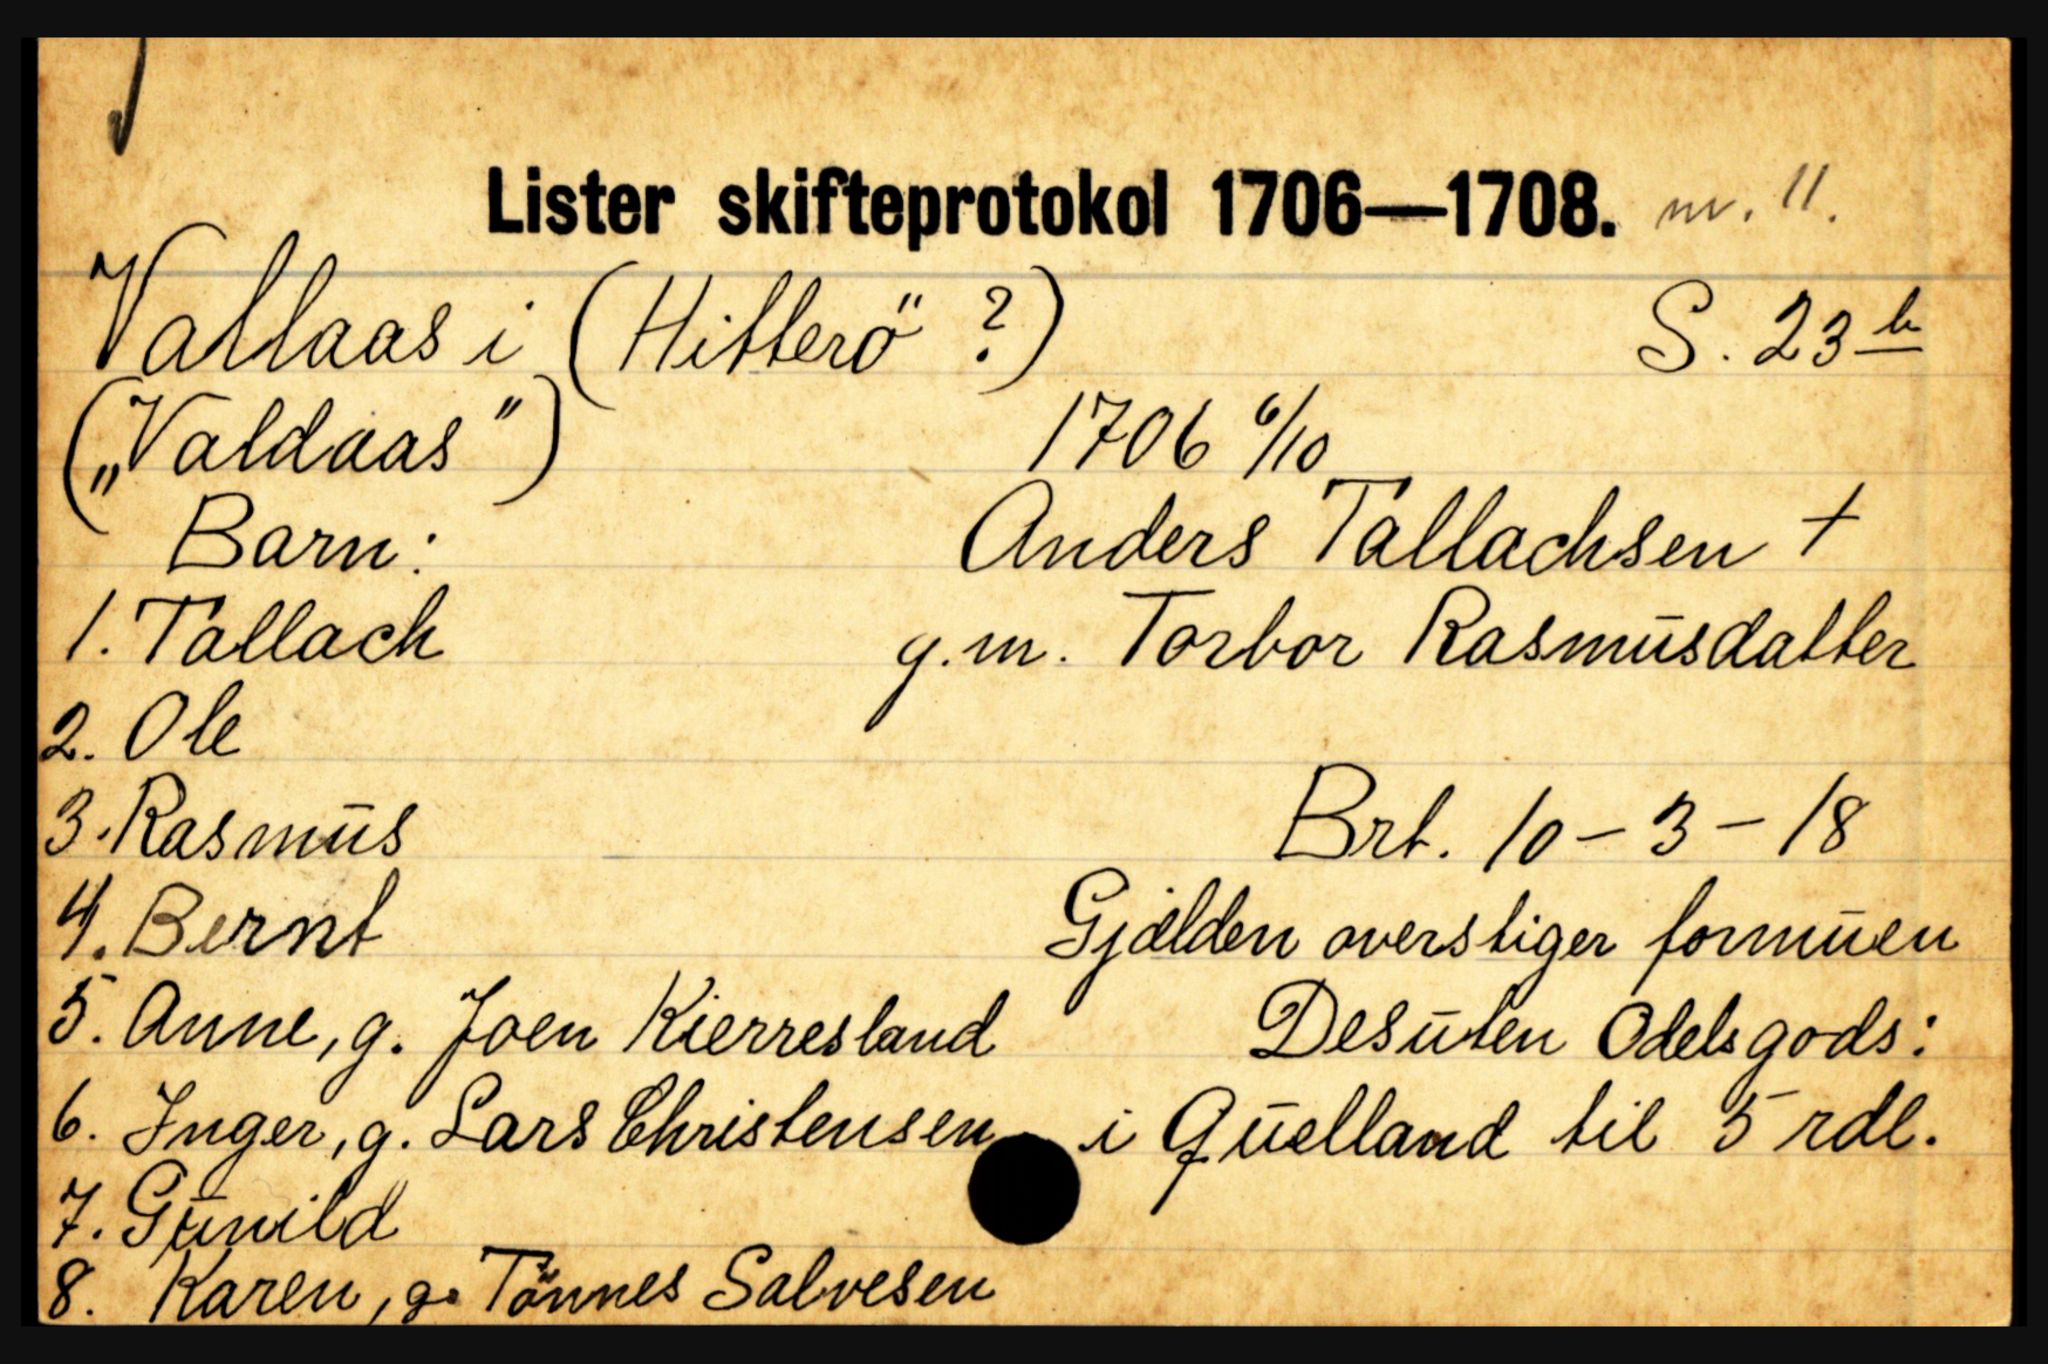 Lister skifteprotokol 1706—1708. nr. 11.
Vatlaas i (Hitterö ?) S. 23 b
(„Valdaas") 1706 6/10
Barn: Anders Tallachsen +
1. Tallach g.m. Torbor Rasmusdatter
2. Ole
3. Rasmus Brt. 10 - 3 - 18
4. Bernt Gjælden overstiger formuen
5. Anne, g. Joen Kierresland Desuten Odelsgods:
6. Inger, g. Lars Christensen i Quelland til 5 rdl.
7. Gunild
8. Karen, g. Tönnes Salvesen